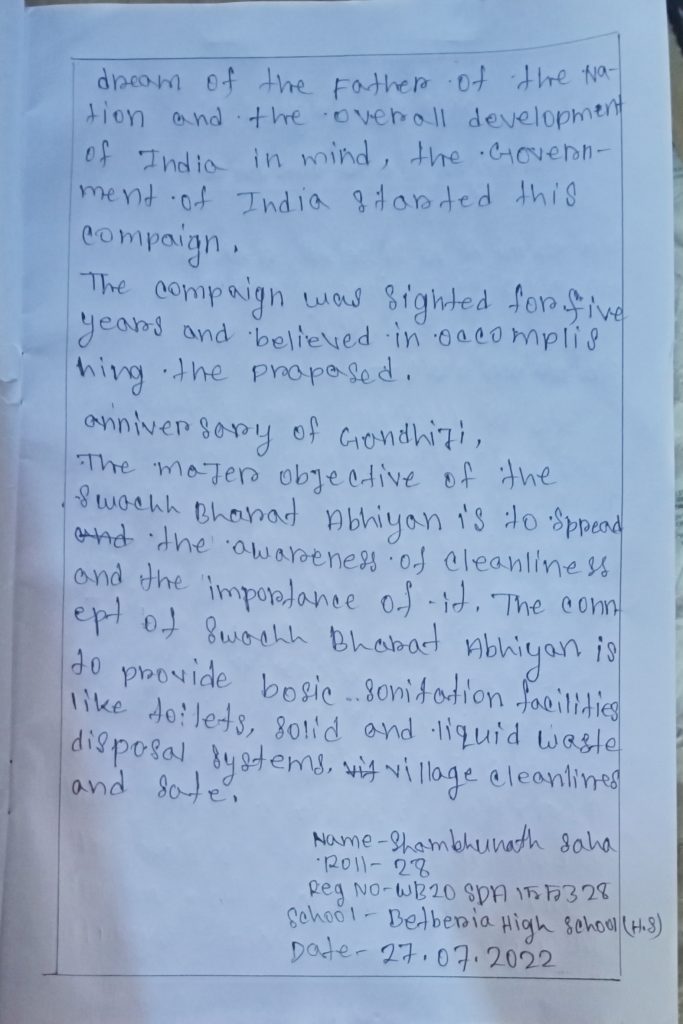 dream of the Father of the Na-
tion and the overall development
of India in mind, the Govern-
ment of India started this
compaign.
The compaign was sighted for five
years and believed in occomplis
hing the proposed.
anniversary of Gandhiji,
The majer objective of the
Swachh Bharat Abhiyan is to spread
and the awareness of cleanliness
and the importance of it. The conn
ept of Swachh Bharat Abhiyan is
to provide bosic sonitation facilities
like toilets, solid and liquid waste
disposal systems, village cleanlines
and safe.
Name - Shambhunath Saha
Roll - 28
Reg No - WB20 SDA
School - Betberia High School (H.S)
Date - 27.07.2022